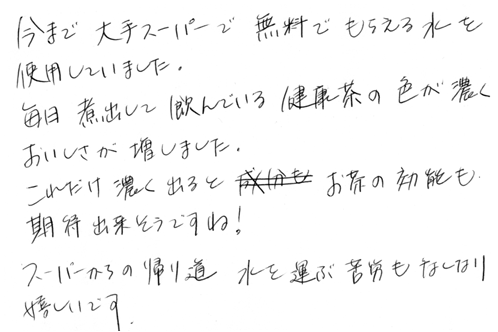 今まで 大手スーパーで 無料で もらえる 水を
使用していました。
毎日 煮出して 飲んでいる 健康茶の 色が 濃く
おいしさが 増しました。
これだけ 濃く 出ると 成分も お茶の 効能も
期待出来そうですね!
スーパーからの 帰り道 水を 運ぶ 苦労も なしになり
嬉しいです.